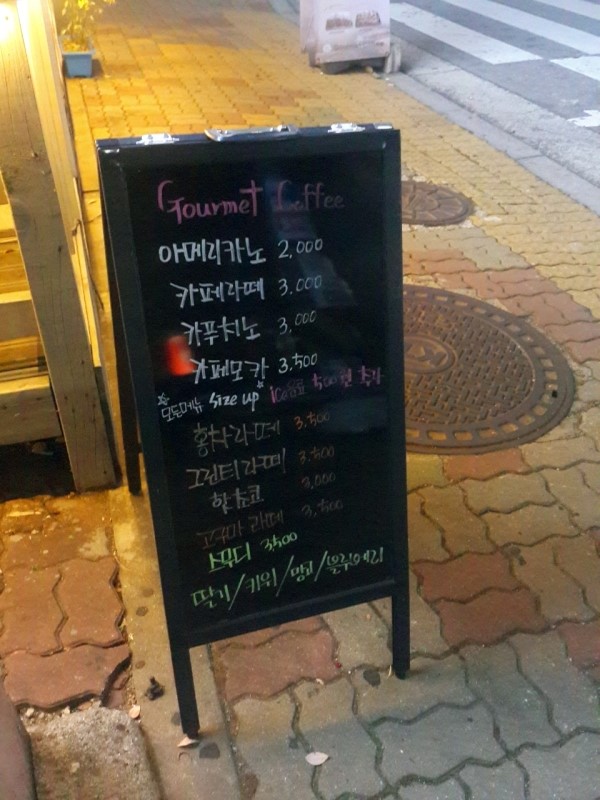 Gourmet Coffee
아메리카노 2,000
카페라떼 3.000
카푸치노 3,000
카페모카 3.500
☆모든메뉴 size up☆ ice음료 500원 추가
홍차라떼 3.500
그린티라떼 3.500
핫초코 3,000
고구마라떼 3.500
스무디 3500
딸기/키위/망고/블루베리